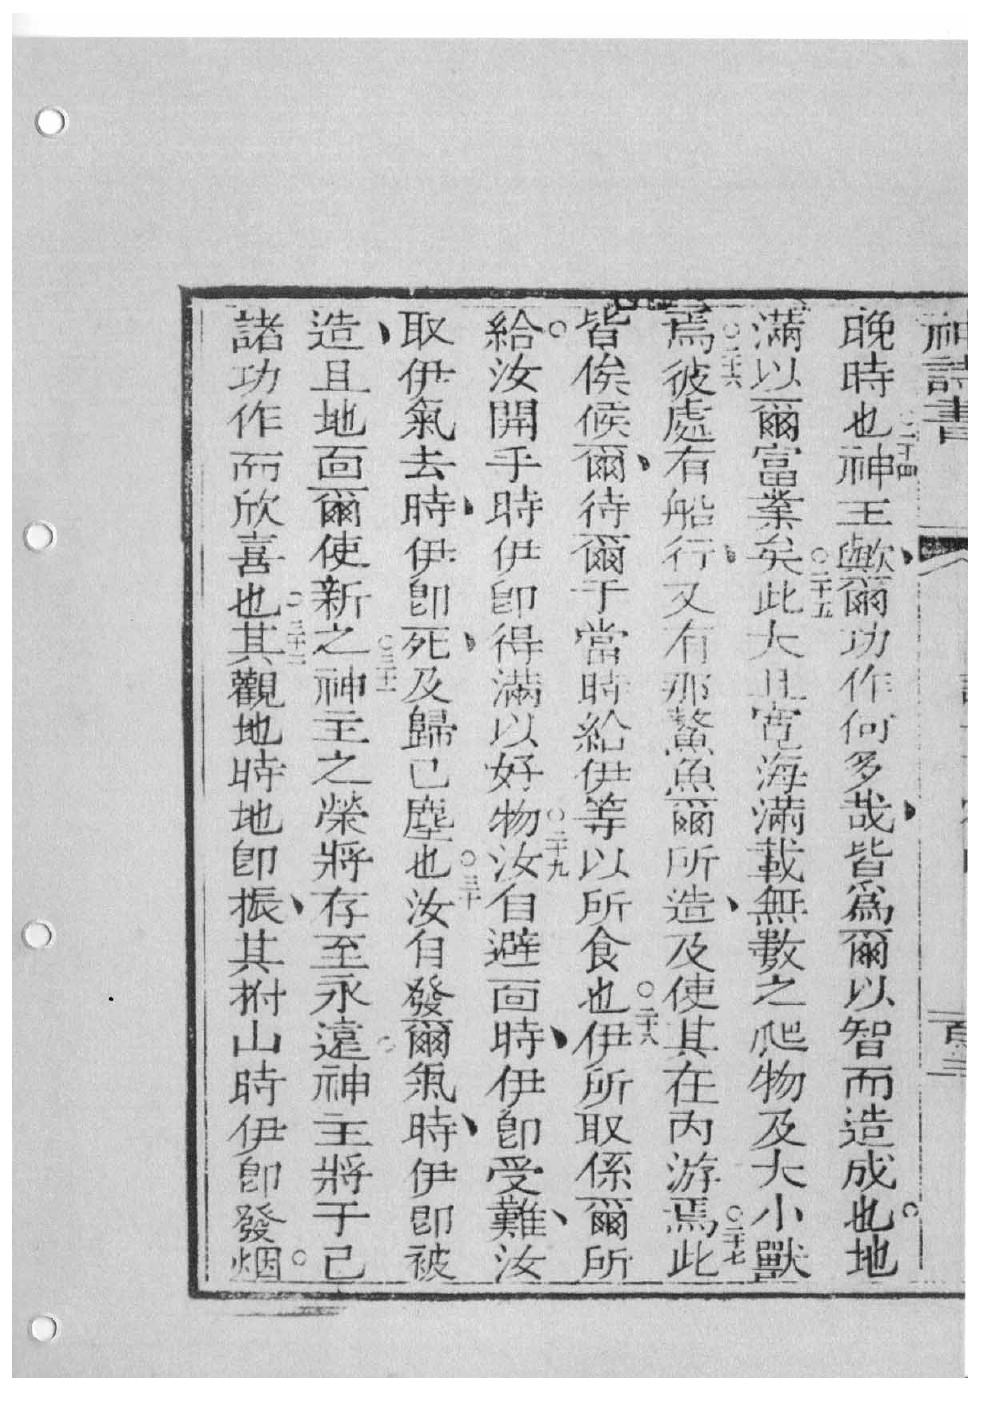 神詩書
晚時也○二十四神主歟爾功作何多哉皆爲爾以智而造成也地
滿以爾富業矣○二十五此大且寬海滿載無數之爬物及大小獸
焉○二十六彼處有船行又有那鰲魚爾所造及使其在內游焉○二十七此
皆俟候爾待爾于當時給伊等以所食也○二十八伊所取係爾所
給汝開手時伊即得滿以好物○二十九汝自避面時伊即受難汝
取伊氣去時伊即死及歸己塵也○三十汝自發爾氣時伊即被
造且地面爾使新之○三十一神主之榮將存至永遠神主將于己
諸功作而欣喜也○三十二其觀地時地即振其拊山時伊即發烟